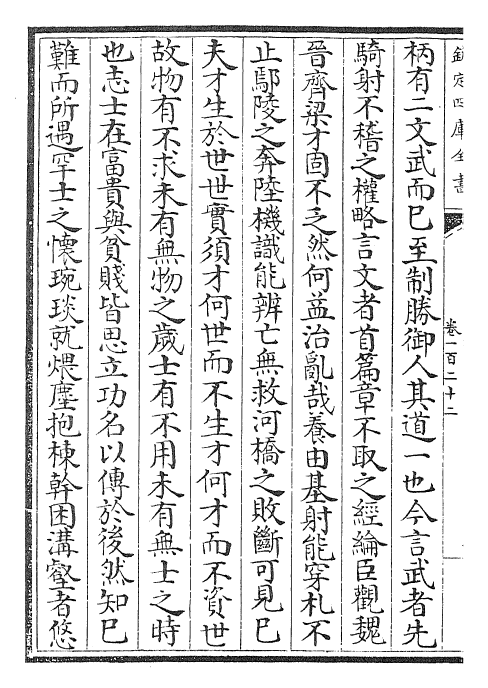 欽定四庫全書
卷一百二十二
柄有二文武而已至制勝御人其道一也今言武者先
騎射不稽之權略言文者首篇章不取之經綸臣觀魏
晉齊梁才固不乏然何益治亂哉養由基射能穿札不
止鄢陵之奔陸機識能辨亡無救河橋之敗斷可見已
夫才生於世世實須才何世而不生才何才而不資世
故物有不求未有無物之歲士有不用未有無士之時
也志士在富貴與貧賤皆思立功名以傳於後然知已
難而所遇罕士之懷琬琰就煨塵抱棟幹困溝壑者悠